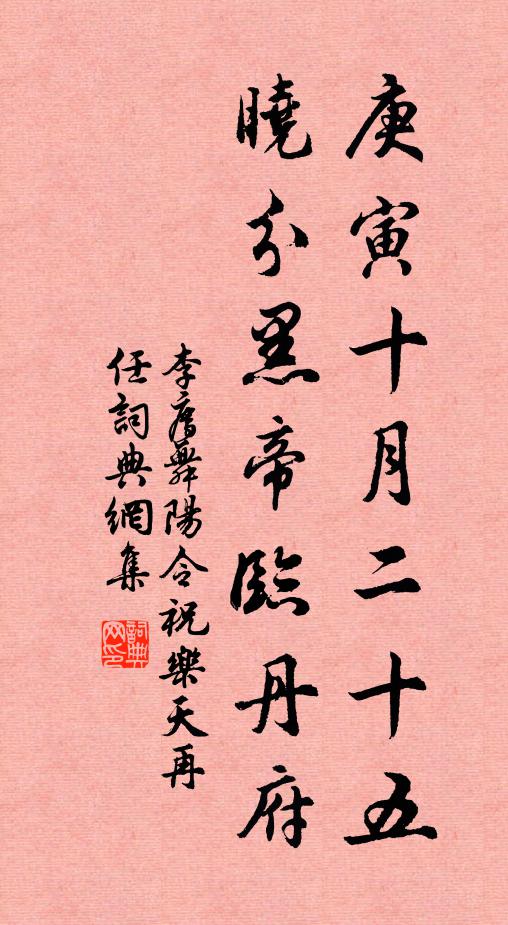 庚寅十月二十五
曉分黑帝臨丹府
李廌舞陽令祝樂天再
任詞典網集
詞典網印